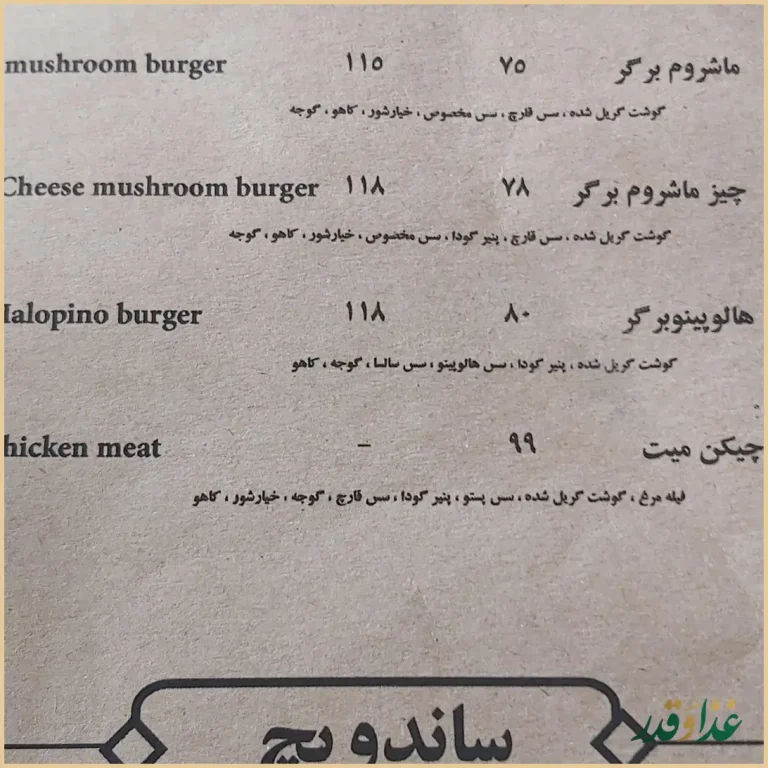 ماشروم برگر ۷۵ ۱۱۵ mushroom burger
گوشت گریل شده ، سس قارچ ، سس مخصوص ، خیارشور ، کاهو ، گوجه
چیز ماشروم برگر ۷۸ ۱۱۸ Cheese mushroom burger
گوشت گریل شده ، سس قارچ ، پنیر گودا ، سس مخصوص ، خیارشور ، کاهو ، گوجه
هالوپینوبرگر ۸۰ ۱۱۸ Halopino burger
گوشت گریل شده ، پنیر گودا ، سس هالوپینو ، سس سالسا ، گوجه ، کاهو
چیکن میت ۹۹ - hicken meat
فیله مرغ ، گوشت گریل شده ، سس پستو ، پنیر گودا ، سس قارچ ، گوجه ، خیارشور ، کاهو
ساندویچ
غذا و قدر